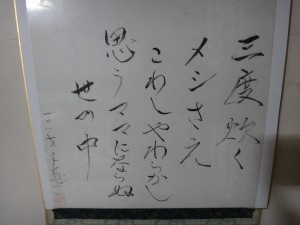 三度炊く
メシさえ
こわしやわらかし
思うママにならぬ
世の中